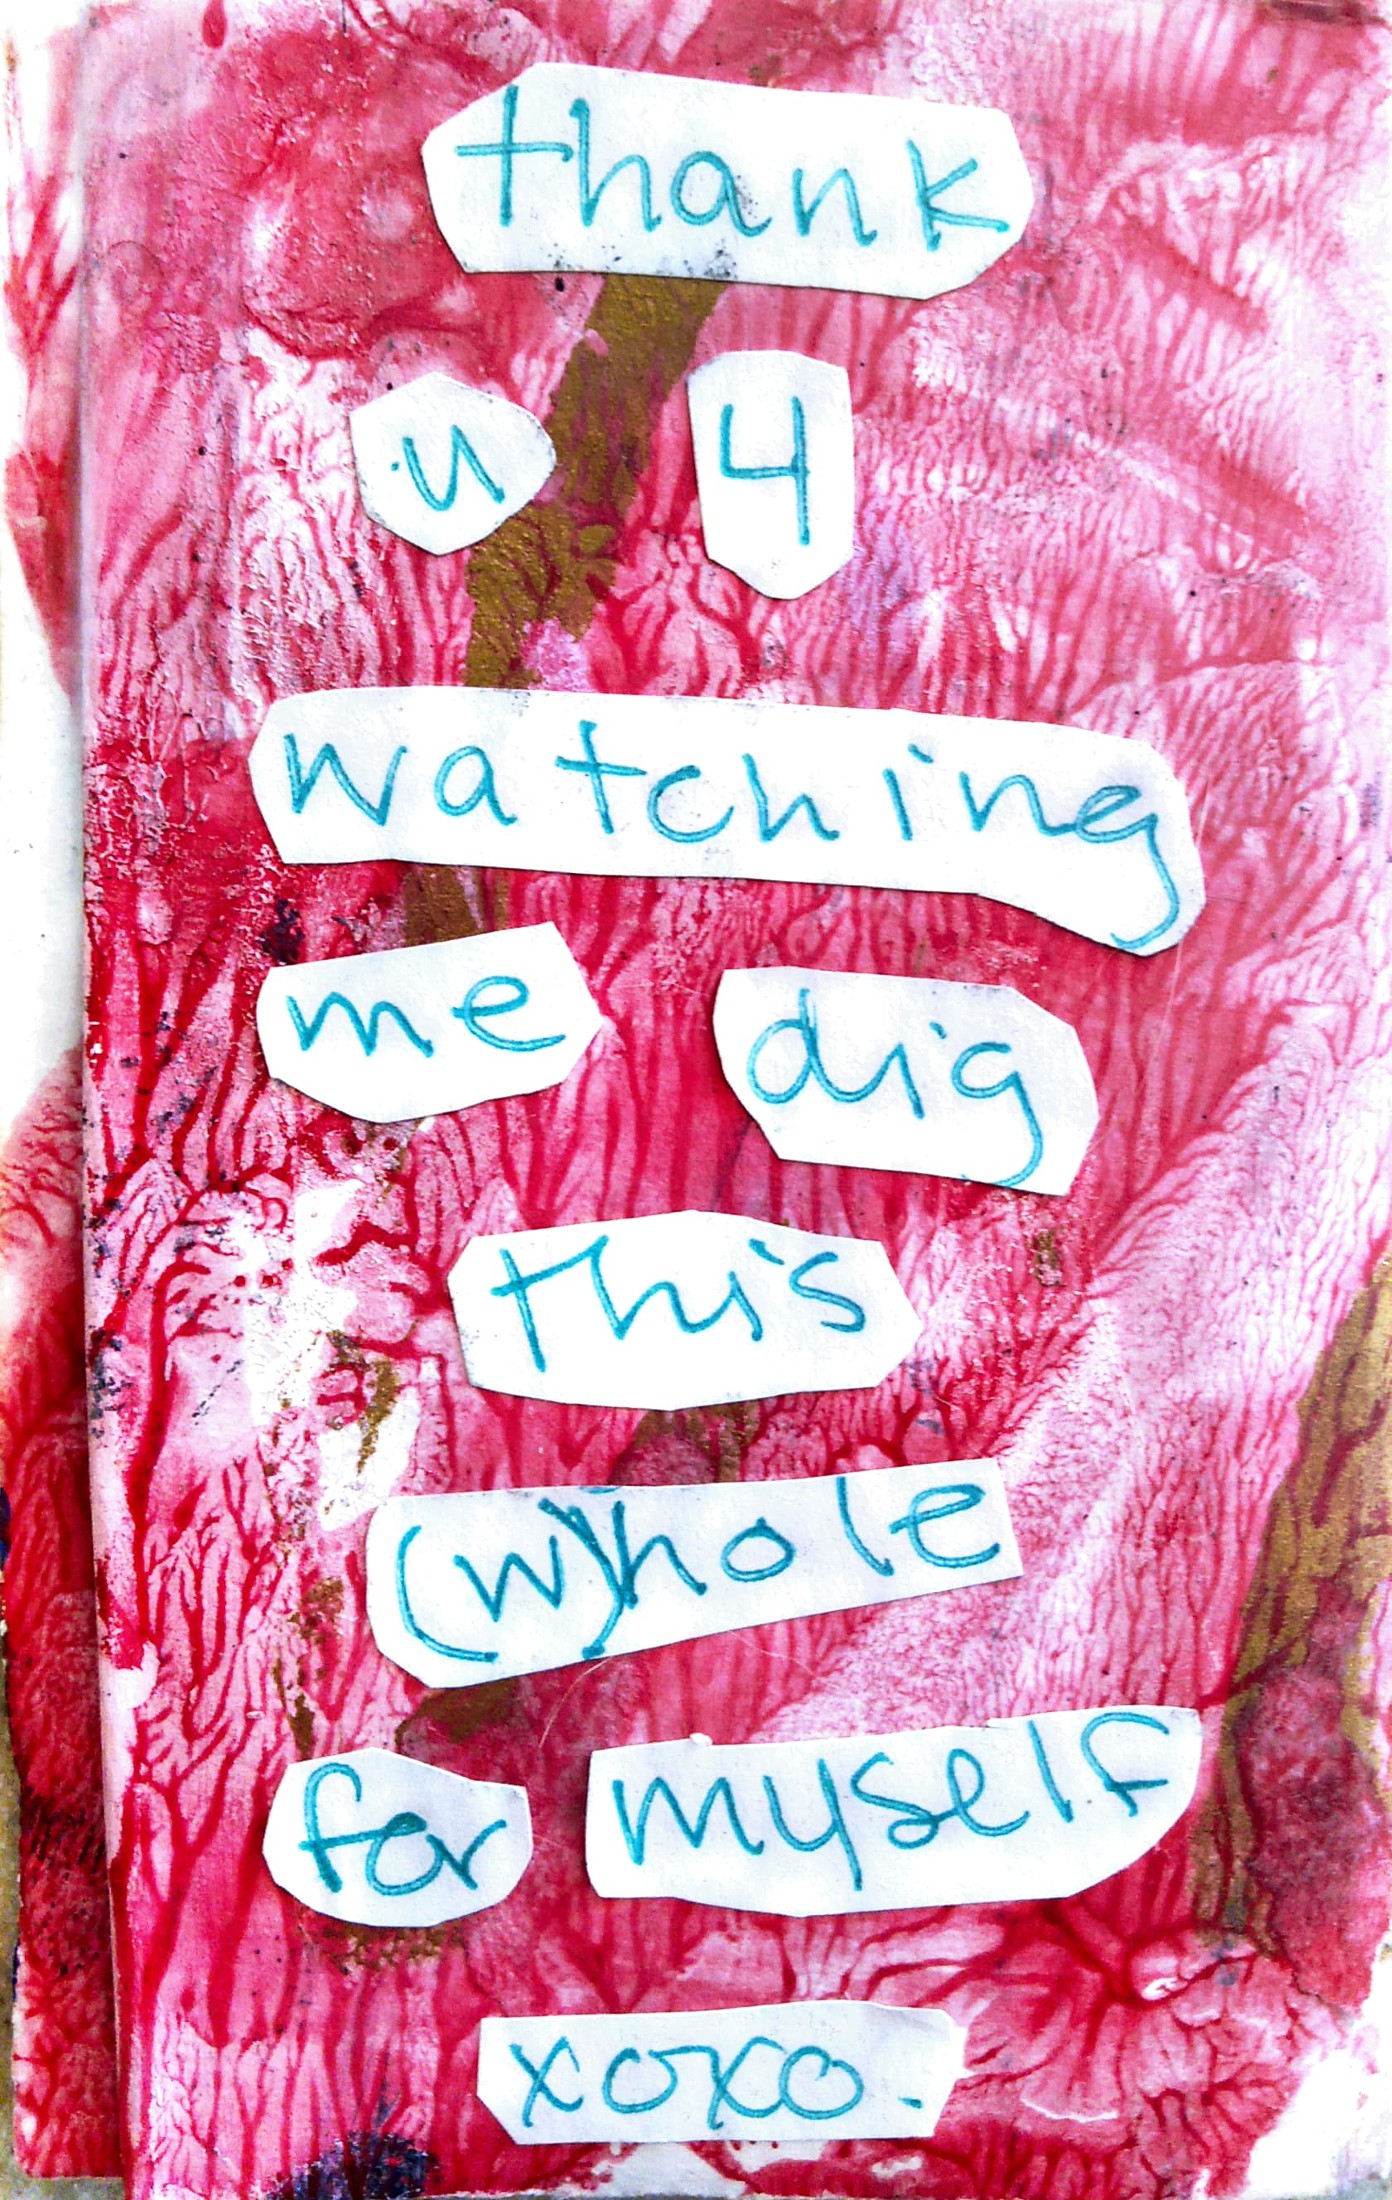 thank
u 4
watching
me dig
this
(w)hole
for myself
xoxo.